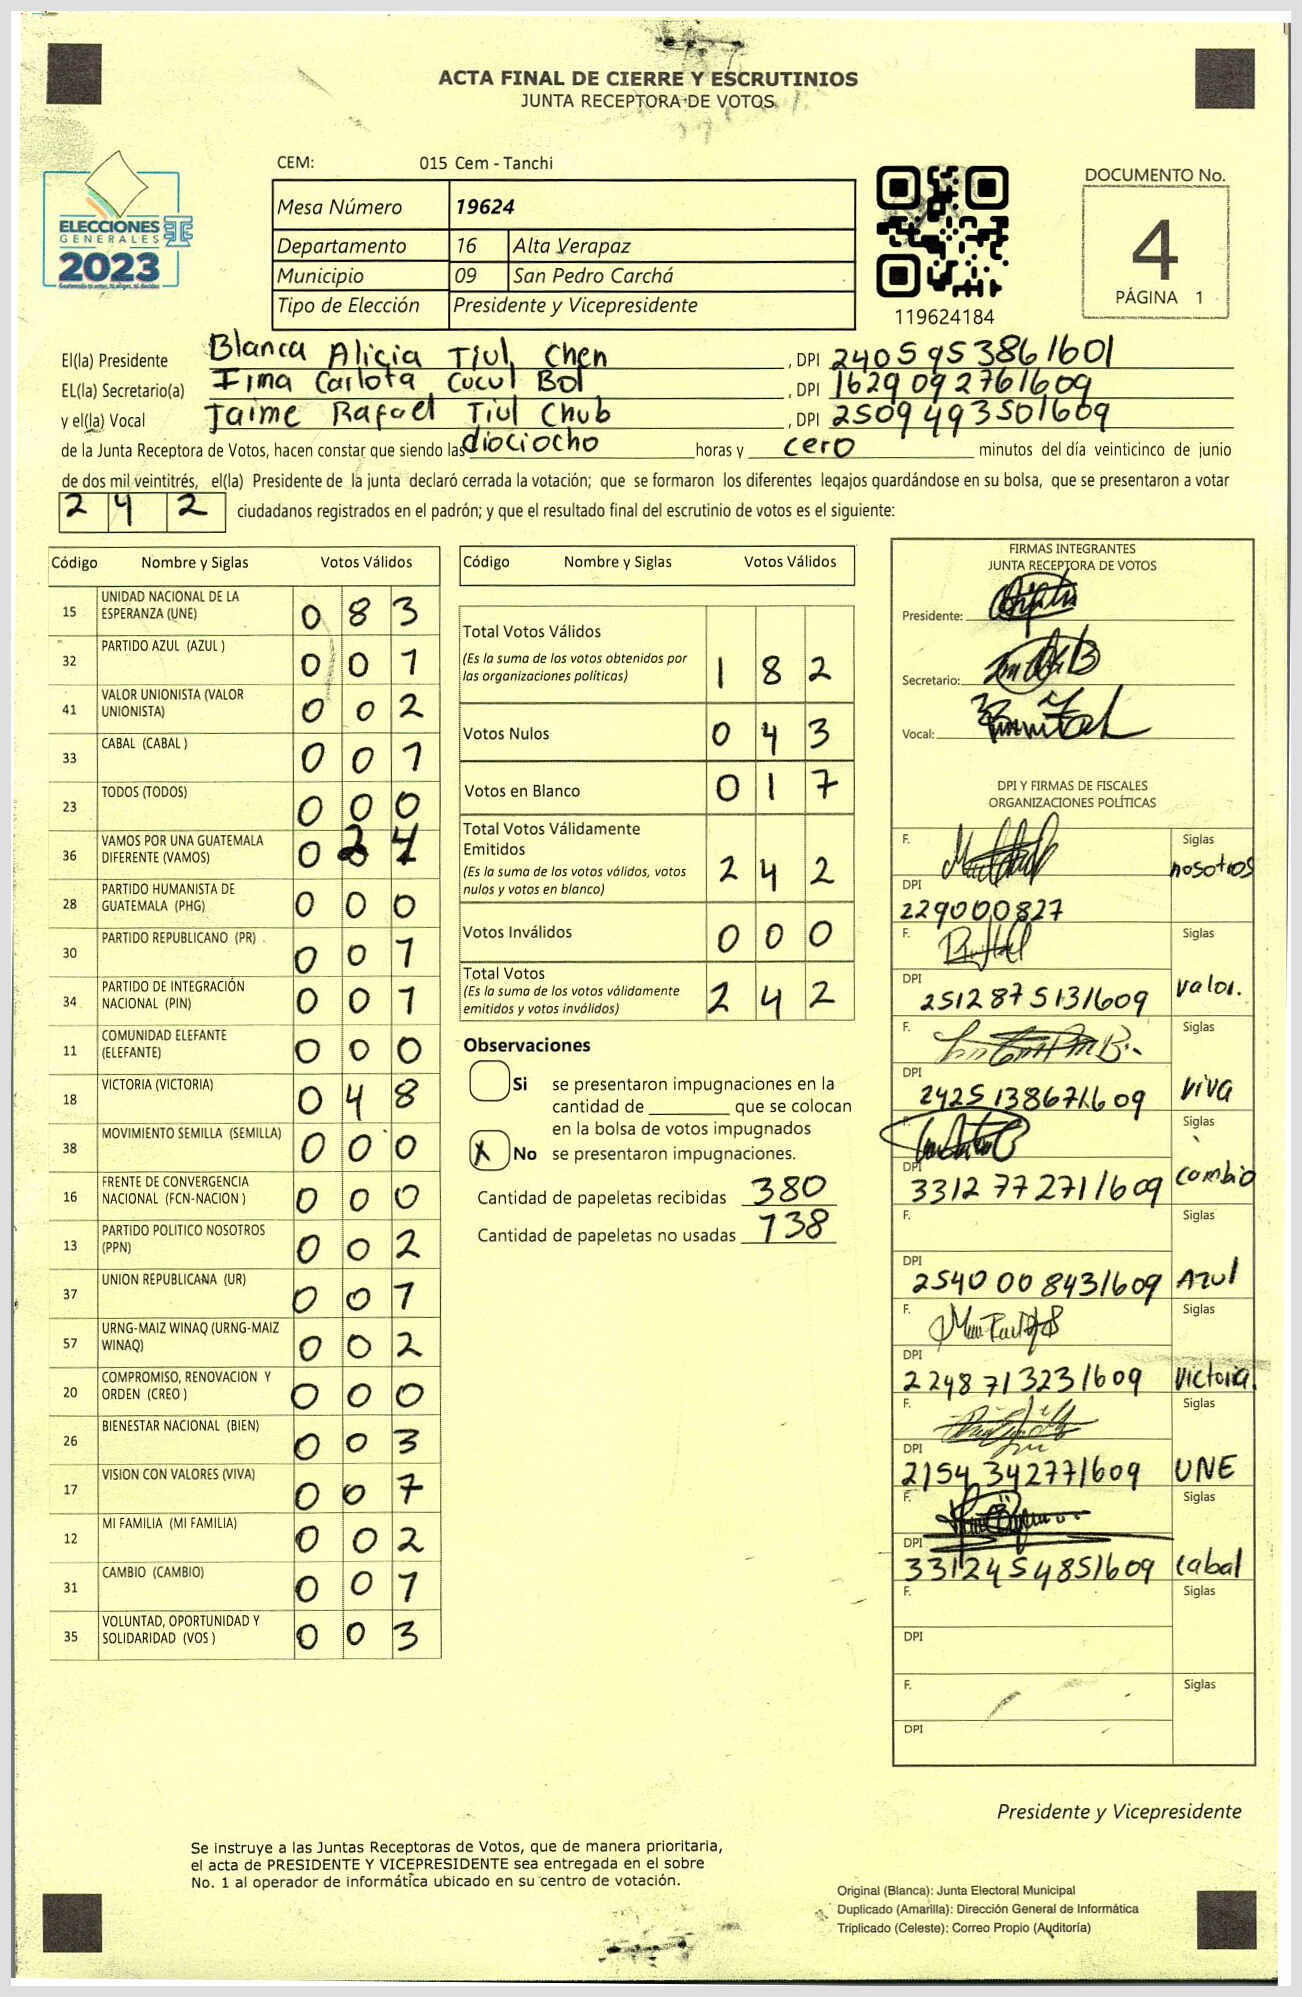 ACTA FINAL DE CIERRE Y ESCRUTINIOS
JUNTA RECEPTORA DE VOTOS
ELECCIONES
GENERALES
2023
CEM: 015 Cem - Tanchi
Mesa Número 19624
Departamento 16 Alta Verapaz
Municipio 09 San Pedro Carchá
Tipo de Elección Presidente y Vicepresidente
119624184
DOCUMENTO No.
4
PÁGINA 1
El(la) Presidente Blanca Alicia Tiul Chen , DPI 2405953861601
EL(la) Secretario(a) Irma Carlota Cucul Bol , DPI 1629092761609
y el(la) Vocal Jaime Rafael Tiul Chub , DPI 2509493501609
de la Junta Receptora de Votos, hacen constar que siendo las diociocho horas y cero minutos del día veinticinco de junio
de dos mil veintitrés, el(la) Presidente de la junta declaró cerrada la votación; que se formaron los diferentes legajos guardándose en su bolsa, que se presentaron a votar
2 4 2 ciudadanos registrados en el padrón; y que el resultado final del escrutinio de votos es el siguiente:
Código Nombre y Siglas Votos Válidos
15 UNIDAD NACIONAL DE LA
ESPERANZA (UNE) 0 8 3
32 PARTIDO AZUL (AZUL ) 0 0 1
41 VALOR UNIONISTA (VALOR
UNIONISTA) 0 0 2
33 CABAL (CABAL ) 0 0 1
23 TODOS (TODOS) 0 0 0
36 VAMOS POR UNA GUATEMALA
DIFERENTE (VAMOS) 0 2 4
28 PARTIDO HUMANISTA DE
GUATEMALA (PHG) 0 0 0
30 PARTIDO REPUBLICANO (PR) 0 0 1
34 PARTIDO DE INTEGRACIÓN
NACIONAL (PIN) 0 0 1
11 COMUNIDAD ELEFANTE
(ELEFANTE) 0 0 0
18 VICTORIA (VICTORIA) 0 4 8
38 MOVIMIENTO SEMILLA (SEMILLA) 0 0 0
16 FRENTE DE CONVERGENCIA
NACIONAL (FCN-NACION ) 0 0 0
13 PARTIDO POLITICO NOSOTROS
(PPN) 0 0 2
37 UNION REPUBLICANA (UR) 0 0 1
57 URNG-MAIZ WINAQ (URNG-MAIZ
WINAQ) 0 0 2
20 COMPROMISO, RENOVACION Y
ORDEN (CREO ) 0 0 0
26 BIENESTAR NACIONAL (BIEN) 0 0 3
17 VISION CON VALORES (VIVA) 0 0 7
12 MI FAMILIA (MI FAMILIA) 0 0 2
31 CAMBIO (CAMBIO) 0 0 1
35 VOLUNTAD, OPORTUNIDAD Y
SOLIDARIDAD (VOS ) 0 0 3
Código Nombre y Siglas Votos Válidos
Total Votos Válidos
(Es la suma de los votos obtenidos por
las organizaciones políticas) 1 8 2
Votos Nulos 0 4 3
Votos en Blanco 0 1 7
Total Votos Válidamente
Emitidos
(Es la suma de los votos válidos, votos
nulos y votos en blanco) 2 4 2
Votos Inválidos 0 0 0
Total Votos
(Es la suma de los votos válidamente
emitidos y votos inválidos) 2 4 2
Observaciones
Si se presentaron impugnaciones en la
cantidad de ________ que se colocan
en la bolsa de votos impugnados
X No se presentaron impugnaciones.
Cantidad de papeletas recibidas 380
Cantidad de papeletas no usadas 138
FIRMAS INTEGRANTES
JUNTA RECEPTORA DE VOTOS
Presidente:
Secretario:
Vocal:
DPI Y FIRMAS DE FISCALES
ORGANIZACIONES POLÍTICAS
F. Siglas
nosotros
DPI
229000827
F. Siglas
DPI valor.
2512875131609
F. Siglas
DPI viva
2425138671609
F. Siglas
DPI cambio
3312772711609
F. Siglas
DPI
2540008431609 Azul
F. Siglas
DPI
2248713231609 victoria.
F. Siglas
DPI
2154342771609 UNE
F. Siglas
DPI
3312454851609 cabal
F. Siglas
DPI
F. Siglas
DPI
Presidente y Vicepresidente
Se instruye a las Juntas Receptoras de Votos, que de manera prioritaria,
el acta de PRESIDENTE Y VICEPRESIDENTE sea entregada en el sobre
No. 1 al operador de informática ubicado en su centro de votación.
Original (Blanca): Junta Electoral Municipal
Duplicado (Amarilla): Dirección General de Informática
Triplicado (Celeste): Correo Propio (Auditoría)